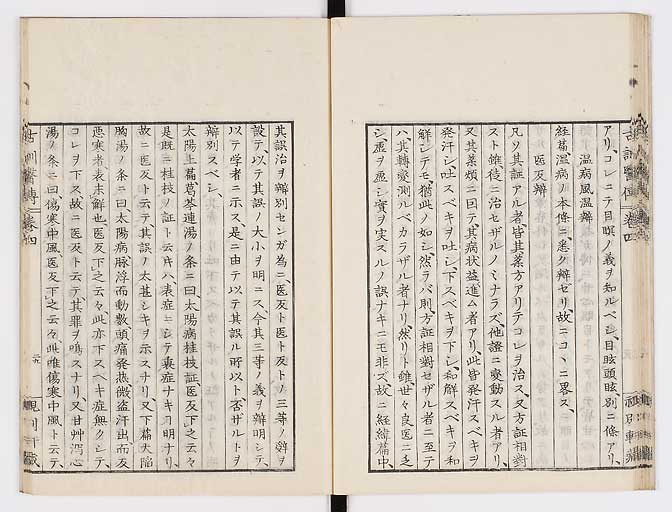 アリ、コレニテ目瞑ノ義ヲ知ルベシ、目眩頭眩別ニ條アリ、
温病風温辨
経篇温病ノ本條ニ悉ク辨ゼリ、故ニコヽニ畧ス、
医反辨
凡ソ其証アル者、皆其薬方アリテコレヲ治ス、又方証相對
スト雖、徒ニ治セザルノミナラズ、他證ニ変動スル者アリ、
又其薬煩ニ曰テ、其病状益進ム者アリ、此皆発汗スベキヲ
発汗シ、吐スベキヲ吐シ、下スベキヲ下シ、和解スベキヲ和
解シテモ、猶此ノ如シ、然ラバ則、方証相對セザル者ニ至テ
ハ、其轉変測ルベカラザル者ナリ、然リト雖、世々良医ニ乏
シ、虚ヲ虚シ、実ヲ実スルノ誤ナキニモ非ズ、故ニ経緯篇中、
其誤治ヲ辨別センガ為ニ、医反ト医ト反トノ三等ノ辞ヲ
設テ、以テ其誤ノ大小ヲ明ニス、今其三等ノ義ヲ辨明シテ、
以テ学者ニ示ス、是ニ由テ以テ其誤ル所以ト否ザルトヲ
辨別スベシ、
太陽上篇葛芩連湯ノ条ニ曰、太陽病桂枝証、医反下之云々
是既ニ桂枝ノ証ト云トキハ、表症ニシテ裏症ナキヿ明ナリ、
故ニ医反ト云テ、其誤ノ太甚シキヲ示スナリ、又下篇大陥
胸湯ノ条ニ曰、太陽病、脉浮而動數、頭痛発熱、微盗汗出、而反
悪寒者、表未解也、医反下之云々、此亦下スベキ症無クシテ、
コレヲ下ス、故ニ医反ト云テ、其罪ヲ鳴スナリ、又甘艸瀉心
湯ノ条ニ曰、傷寒中風、医反下之云々、此唯傷寒中風ト云テ、